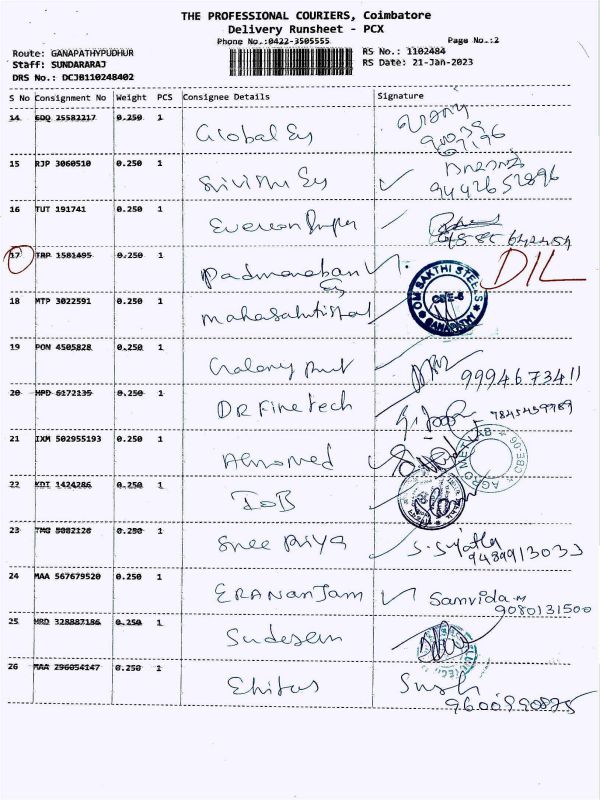 THE PROFESSIONAL COURIERS, Coimbatore
Delivery Runsheet - PCX
Phone No.:0422-3505555 Page No.:2
Route: GANAPATHYPUDHUR RS No.: 1102484
Staff: SUNDARARAJ RS Date: 21-Jan-2023
DRS No.: DCJB110248402
S No Consignment No Weight PCS Consignee Details Signature
14 GDQ 25582217 0.250 1 Global Ey
15 RJP 3060510 0.250 1 Srivishu Ey 9442652896
16 TUT 191741 0.250 1
17 TRP 1581495 0.250 1 Padmanaban Ey DIL
18 MTP 3022591 0.250 1 Mahasakthisteel OM SAKTHI STEELS CBE-6 GANAPATHY
19 PON 4505828 0.250 1 9994673411
20 HPD 6172135 0.250 1 DR Finetech 7845459789
21 IXM 502955193 0.250 1 AGRO METLAB CBE-06
22 KDI 1424286 0.250 1 IOB
23 TMG 5082126 0.250 1 Sree Priya S. Sujatha 9489913033
24 MAA 567679520 0.250 1 ERANANJAM Samvida.M 9080131500
25 HRD 328887186 0.250 1 Sudesan
26 MAA 296054147 0.250 1 Ehitus Sush 9600890875